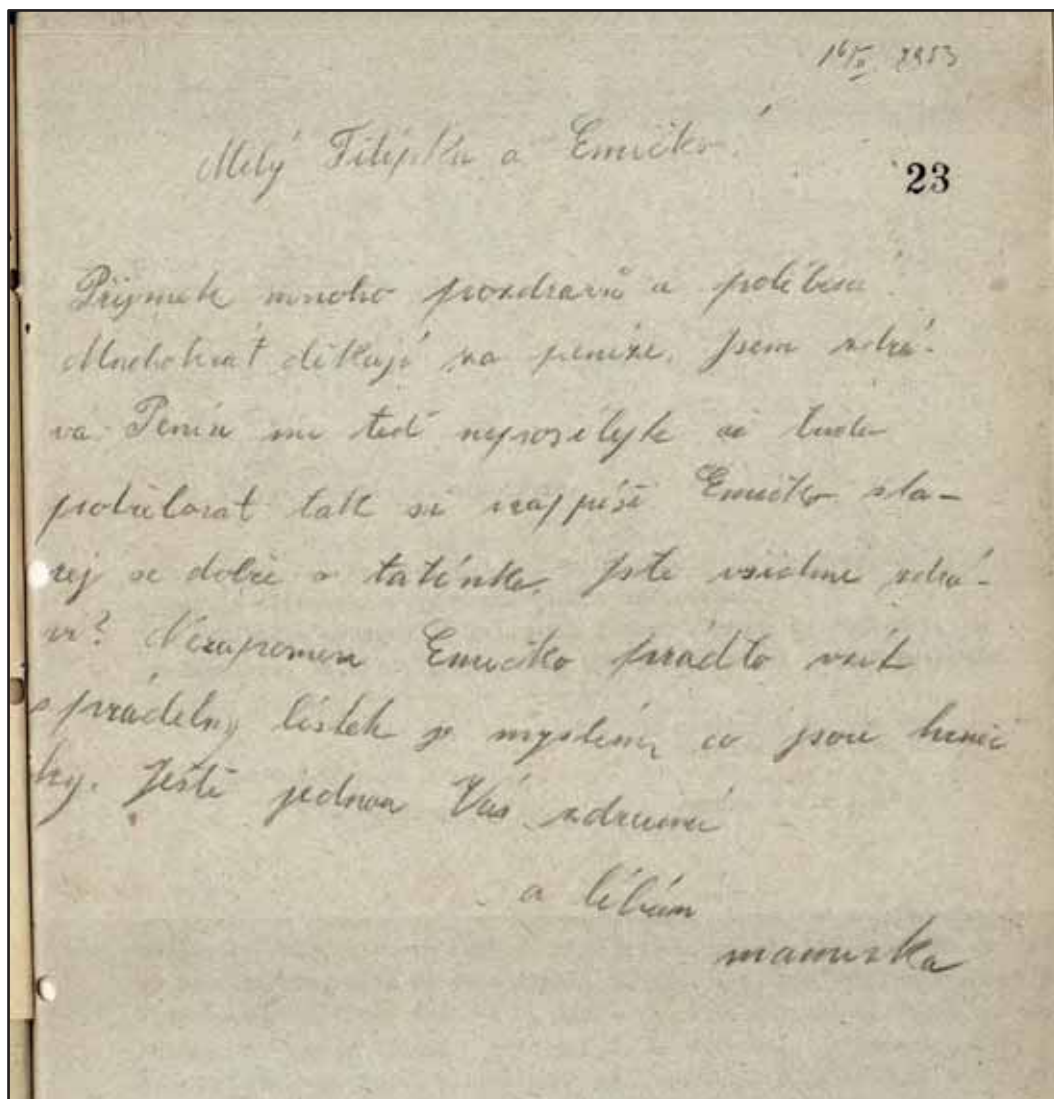 16/II 1953
Milý Filípku a Emičko!
23
Přijměte mnoho pozdravů a políbení!
Mnohokrát děkuji za peníze. Jsem zdrá-
va. Peníz mi teď neposílejte až budu
potřebovat tak si napíši Emičko sta-
rej se dobře o tatínka. Jste všichni zdrá-
vi? Nezapomeň Emičko prádlo vzít
prádelny lístek je myslím, co jsou
ky. Ještě jednou Vás zdravím
a líbám
mamuška